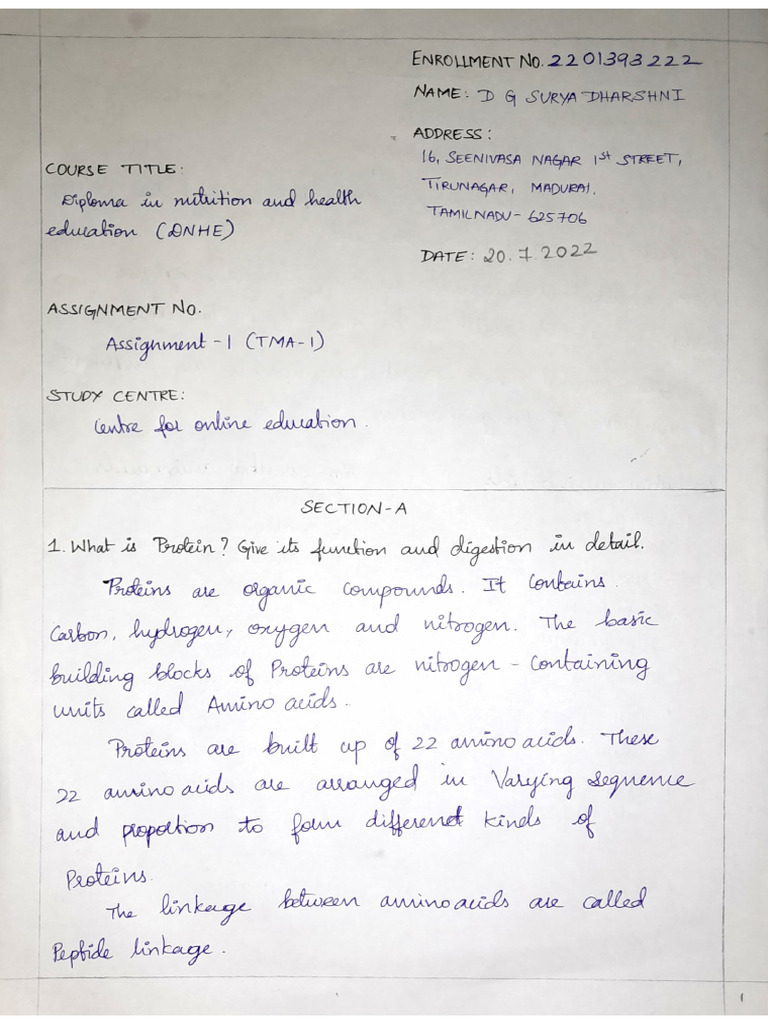 ENROLLMENT NO. 2201393222
NAME: D G SURYA DHARSHNI
ADDRESS:
16, SEENIVASA NAGAR 1st STREET,
TIRUNAGAR, MADURAI.
TAMILNADU - 625706
DATE: 20.7 2022
COURSE TITLE:
Diploma in nutrition and health
education (DNHE)
ASSIGNMENT NO.
Assignment - 1 (TMA-1)
STUDY CENTRE:
Centre for online education.
SECTION-A
1. What is Protein? Give its function and digestion in detail.
Proteins are organic compounds. It Contains.
Carbon, hydrogen, oxygen and nitrogen. The basic
building blocks of Proteins are nitrogen - Containing
units called Amino acids.
Proteins are built up of 22 amino acids. These
22 amino acids are arranged in Varying sequence
and proportion to form different kinds of
Proteins.
The linkage between amino acids are called
Peptide linkage.
1